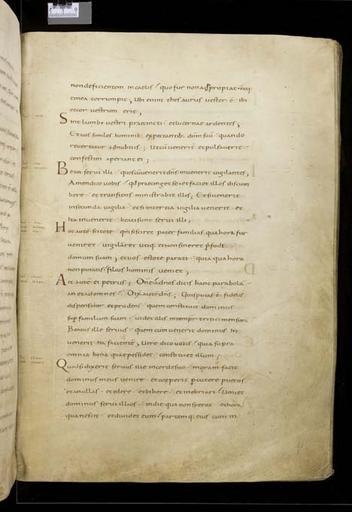 non deficientem in caelis quo fur non appropiat neq;
tinea corrumpit, Ubi enim thesaurus vester est ibi
et cor vestrum erit,
Sint lumbi vestri praecincti et lucernae ardentes,
Et vos similes hominib; expectantib; dnm suu quando
revertatur a nuptiis, Ut cu venerit et pulsaverit
confestim aperiant ei,
Beati servi illi quos cu venerit dns invenerit vigilantes,
Amen dico vobis quod praecinget se et faciet illos discum
bere et transiens ministrabit illis, Et si venerit
in secunda vigilia et si in tertia vigilia venerit et
ita invenerit beati sunt servi illi,
Hoc autem scitote qm si sciret pater familias qua hora fur
veniret vigilaret utiq; et non sineret perfodi
domum suam, et vos estote parati quia qua hora
non putatis filius hominis veniet,
Ait aut ei petrus, Dne ad nos dicis hanc parabola
an et ad omnes Dixit aut dns, Quis putas e fidelis
dispensator et prudens quem constituit dominus
super familiam suam ut det illis in tempore tritici mensura
Beatus ille servus quem cum venerit dominus in
venerit ita faciente, Vere dico vobis quia supra
omnia quae possidet constituet illum,
Quod si dixerit servus ille in corde suo moram facit
dominus meus venire et coeperit percutere pueros
et ancillas et edere et bibere et inebriari Veniet
dominus servi illius in die qua non sperat et hora
qua nescit et dividet eum partemq; eius cum in